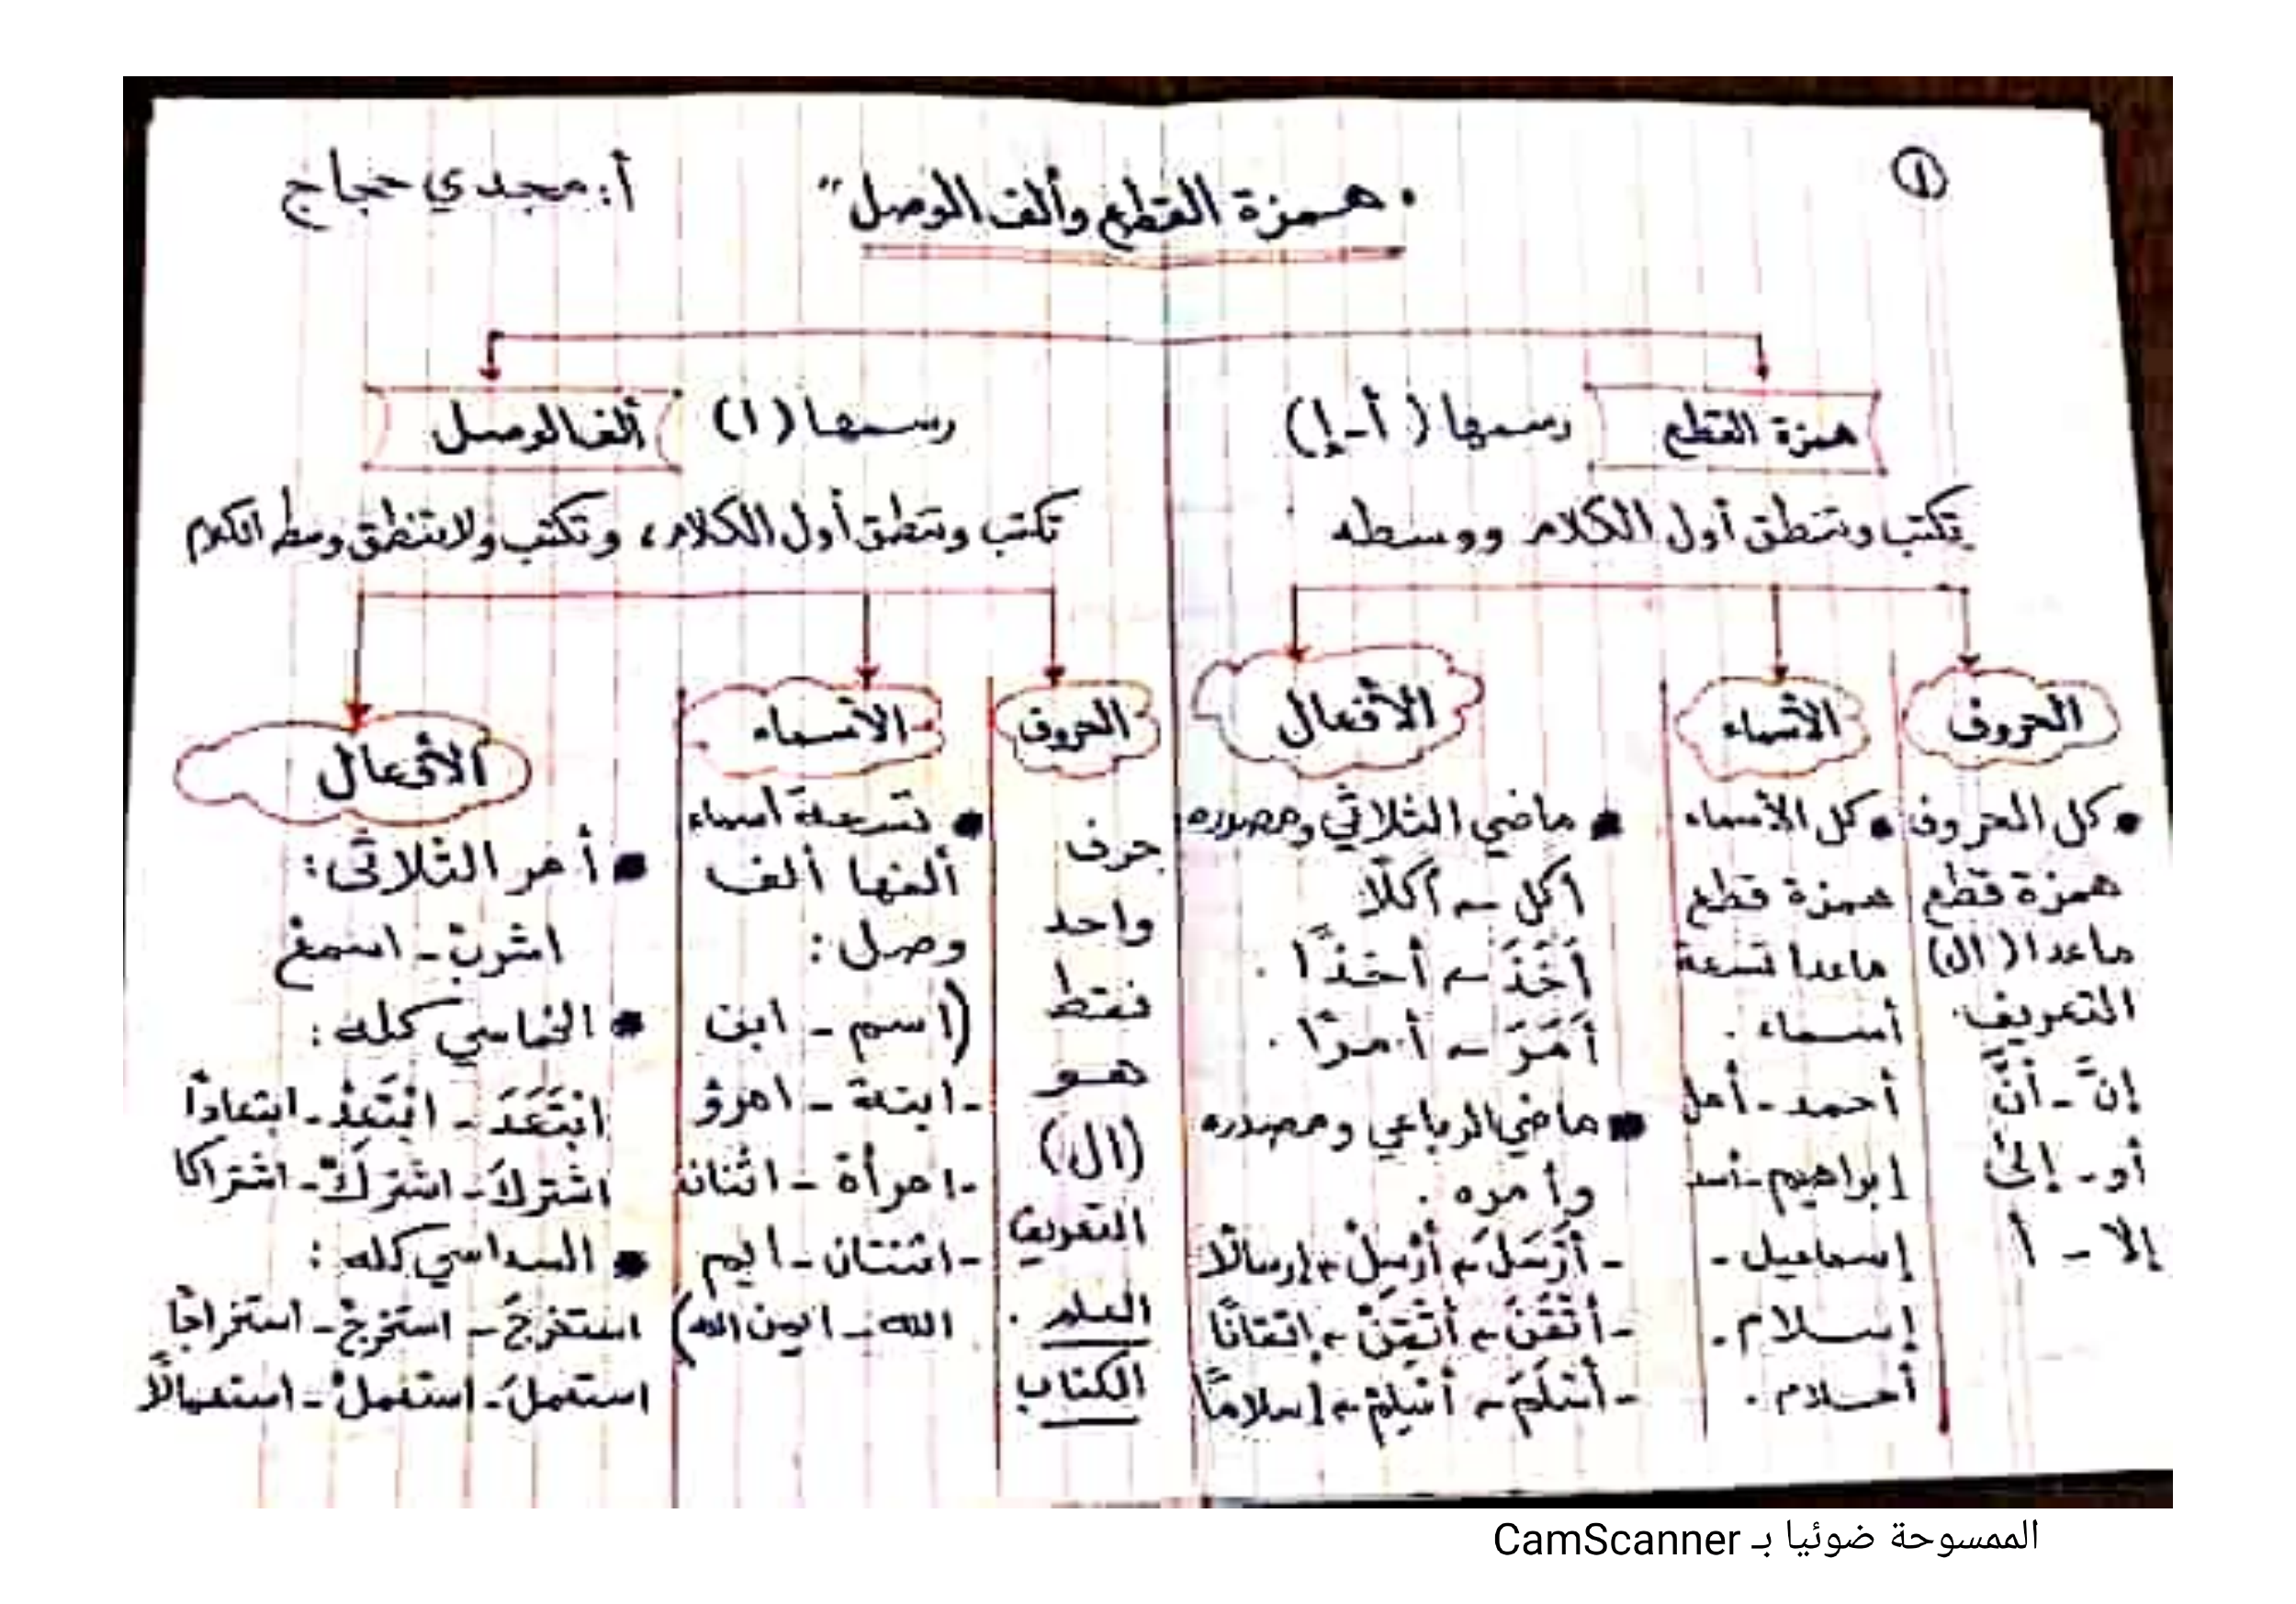 ①
" همزة القطع وألف الوصل "
أ: مجدي حجاج
همزة القطع
رسمها ( أ - إ )
تكتب وتنطق أول الكلام ووسطه
الحروف
• كل الحروف
همزة قطع
ماعدا ( ال )
التعريف.
إنَّ - أنَّ
أو - إلى
إلا - أ
الأسماء
• كل الأسماء
همزة قطع
ماعدا تسعة
أسماء .
أحمد - أمل
إبراهيم - أسد
إسماعيل -
إسلام .
أحلام .
الأفعال
• ماضي الثلاثي ومصدره
أكل ← أكلًا
أَخَذَ ← أخذًا .
أَمَرَ ← أمرًا .
• ماضي الرباعي ومصدره
وأمره .
- أَرْسَلَ ← أرْسِلْ ← إرسالًا
- أَتْقَنَ ← أتْقِنْ ← إتقانًا
- أَسْلَمَ ← أسْلِمْ ← إسلامًا
ألف الوصل
رسمها ( ا )
تكتب وتنطق أول الكلام، وتكتب ولا تنطق وسط الكلام
الحروف
حرف
واحد
فقط
هو
(ال)
التعريف
العلم .
الكتاب
الأسماء
• تسعة أسماء
ألفها ألف
وصل :
(اسم - ابن
- ابنة - امرؤ
- امرأة - اثنان
- اثنتان - ايم
الله - ايمن الله)
الأفعال
• أمر الثلاثى :
اشربْ - اسمعْ
• الخماسي كله :
ابْتَعَدَ - ابْتَعِدْ - ابتعادًا
اشتركَ - اشتركْ - اشتراكا
• السداسي كله :
استخرجَ - استخرجْ - استخراجًا
استعملَ - استعملْ - استعمالًا
الممسوحة ضوئيا بـ CamScanner